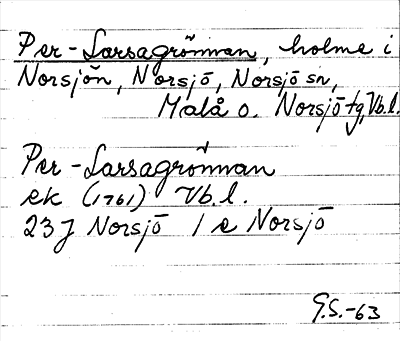 Per-Larsagrönnan, holme i
Norsjön, Norsjö, Norsjö sn,
Malå o. Norsjö tg, Vb.l.
Per-Larsagrönnan
ek (1761) Vb.l.
23 J Norsjö 1 e Norsjö
G.S.-63